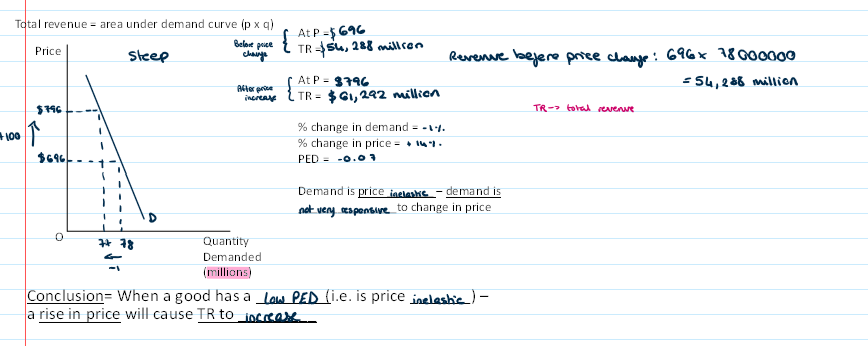 Total revenue = area under demand curve (p x q)
Price
Steep
Before price change { At P = $696
TR = $54,288 million
Revenue before price change: 696 x 78000000
= 54,288 million
After price increase { At P = $796
TR = $61,292 million
TR -> total revenue
$796
+100
$696
% change in demand = -1%.
% change in price = +14%.
PED = -0.07
Demand is price inelastic – demand is
not very responsive to change in price
D
O
77 78
←
-1
Quantity
Demanded
(millions)
Conclusion= When a good has a low PED (i.e. is price inelastic) –
a rise in price will cause TR to increase